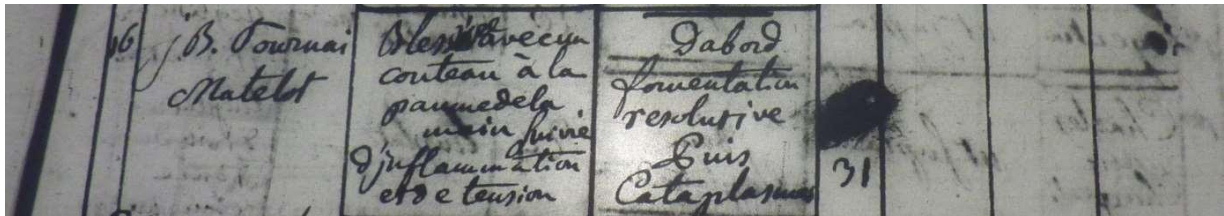 16
J B. Tournai
Matelot
Blessé avec un
couteau à la
paume de la
main suivie
d'inflammation
et de tension
Dabord
fomentation
resolutive
Puis
Cataplasmes
31